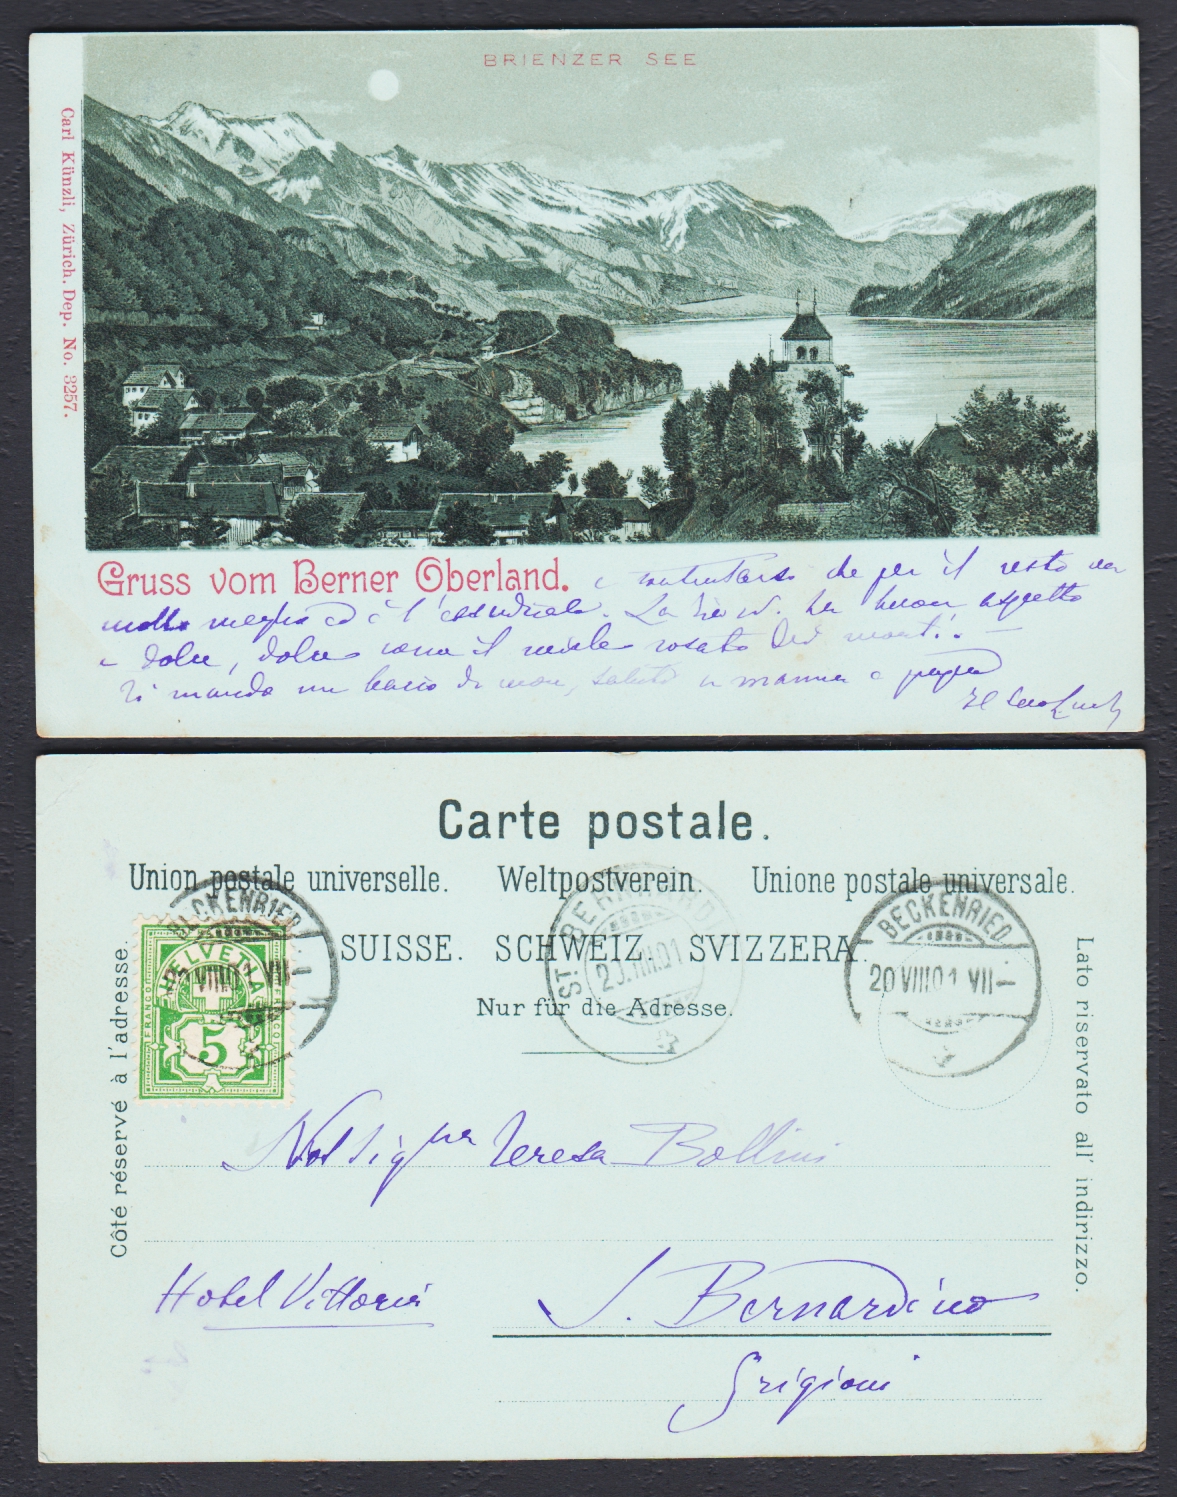 BRIENZER SEE
Carl Künzli, Zürich. Dep. No. 3257.
Gruss vom Berner Oberland.
che per il resto
meglio
buon aspetto
e dolce, dolce come il miele rosato dei
Ti mando un bacio di cuore, saluta mamma e
Carte postale.
Union postale universelle. Weltpostverein. Unione postale universale.
SUISSE. SCHWEIZ. SVIZZERA.
Nur für die Adresse.
Côté réservé à l'adresse.
Lato riservato all' indirizzo.
BECKENRIED
VIII
VII
HELVETIA
FRANCO
FRANCO
5
ST. BERNARDINO
VIII.01
BECKENRIED
20 VIII 01 VII
Teresa Bollini
Hotel Vittoria
S. Bernardino
Grigioni